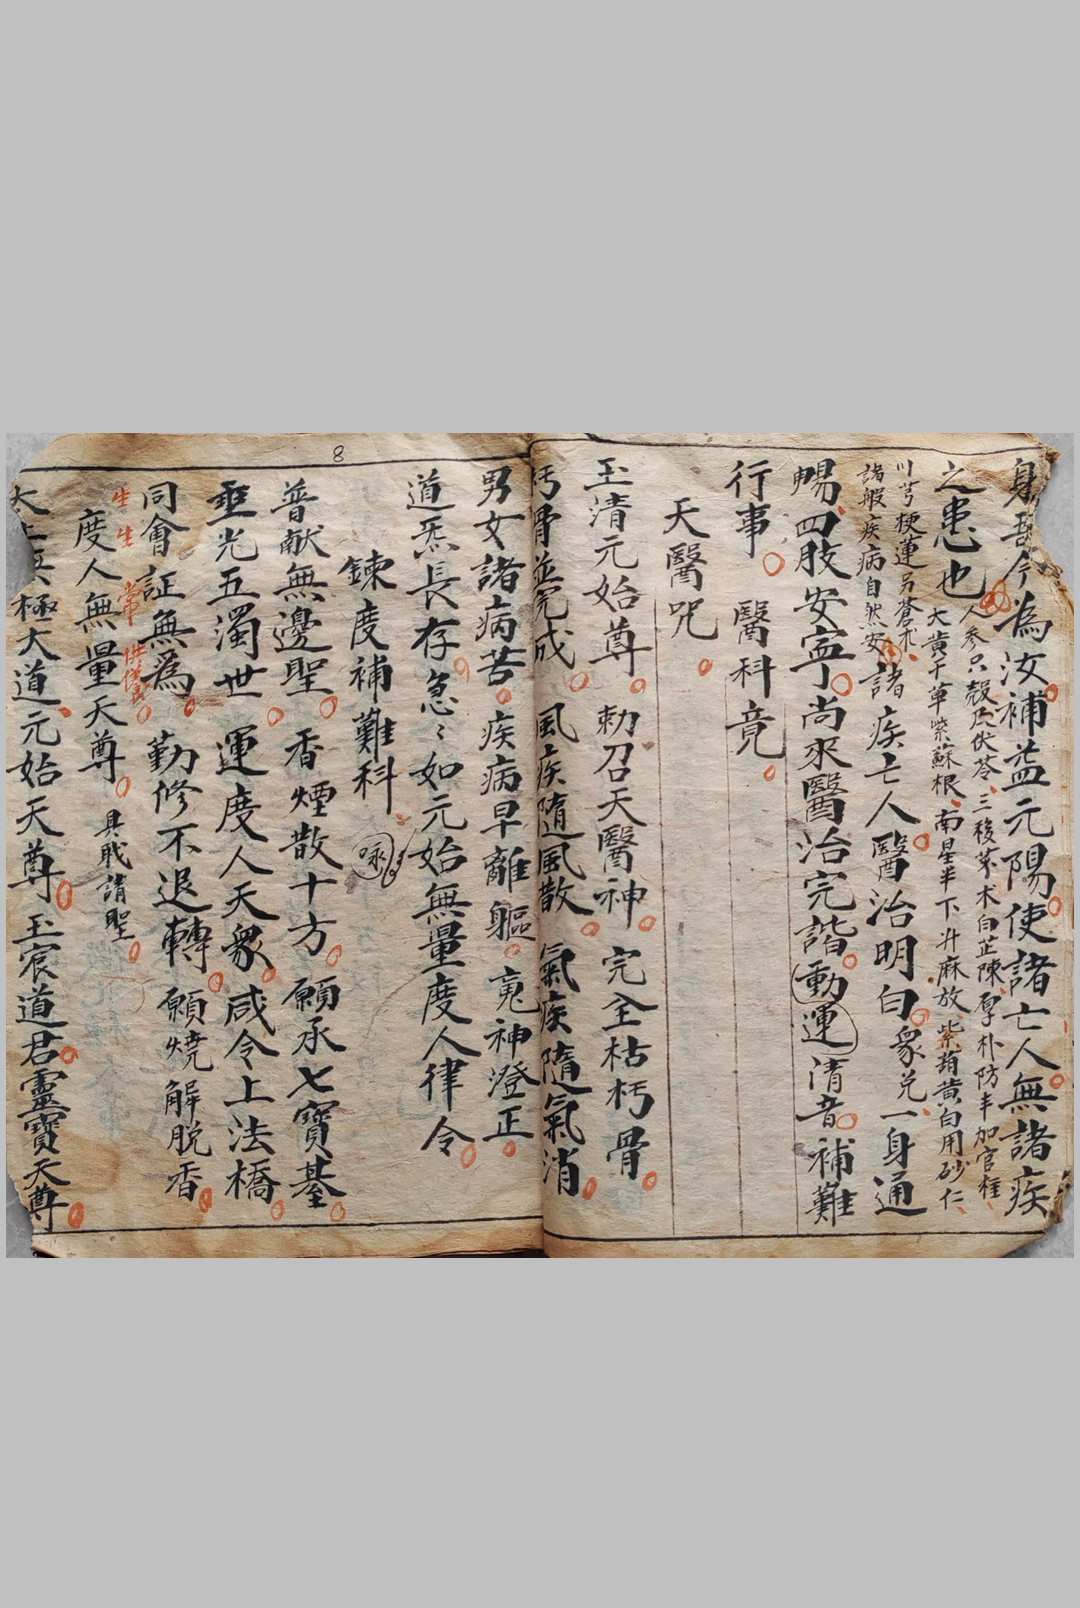 身吾今為汝補益元陽使諸亡人無諸疾
之患也
人參只殼及伏苓三稜莪朮白芷陳厚朴防丰加官桂
大黃干草紫蘇根南星半下升麻放紫菊黃白用砂仁
川芎梗蓮另蒼朮
諸般疾病自然安
諸疾亡人醫治明白衆兊一身通
暢四肢安寧尚來醫治完諧動運清音補難
行事 醫科竟
天醫咒
玉清元始尊 勅召天醫神 完全枯朽骨
朽骨並完成 風疾隨風散 氣疾隨氣消
男女諸病苦 疾病早離軀 䰟神澄正
道炁長存急々如元始無量度人律令
8
鍊度補難科 咏
普献無邊聖 香煙散十方 願承七寶臺
垂光五濁世 運度人天衆 咸令上法橋
同會証無為 勤修不退轉 願燒解脫香
生生 常供養
度人無量天尊 具戝請聖
太上無極大道元始天尊玉宸道君靈寶天尊